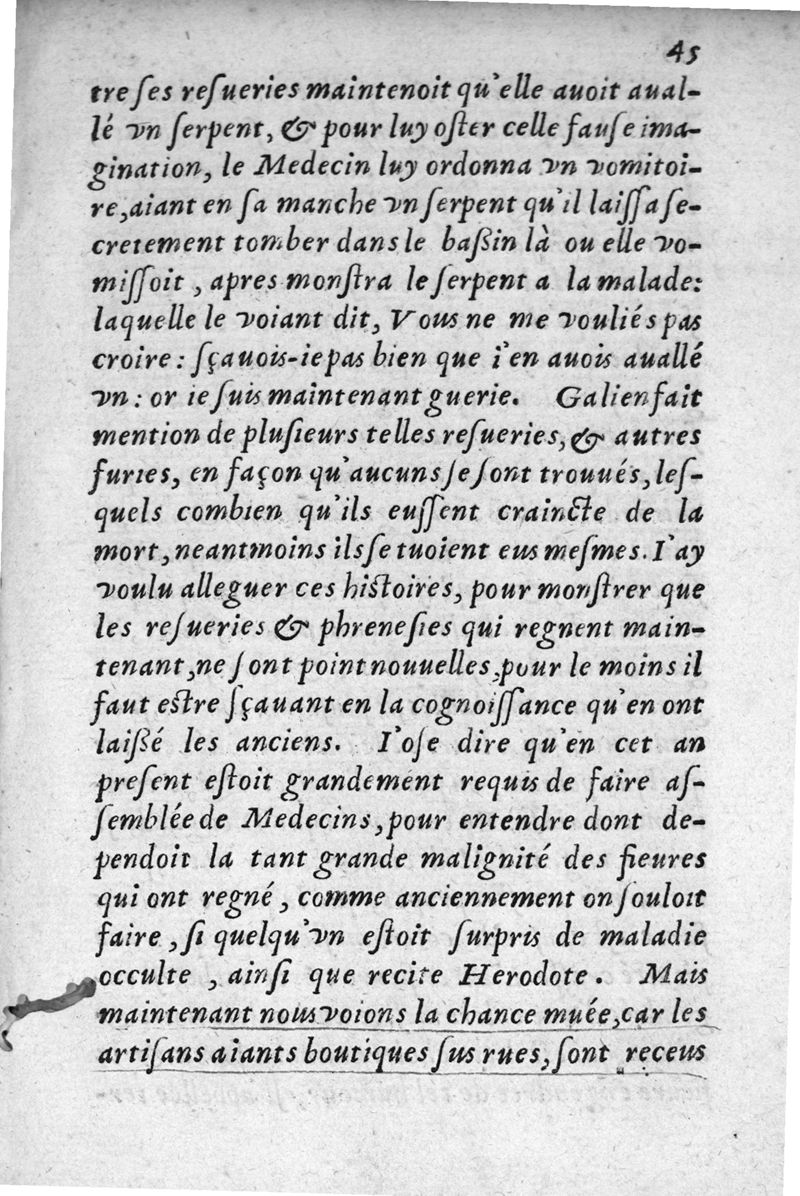 45
tre ſes reſueries maintenoit qu'elle auoit aual-
lé vn ſerpent, & pour luy oſter celle fauſe ima-
gination, le Medecin luy ordonna vn vomitoi-
re, aiant en ſa manche vn ſerpent qu'il laiſſa ſe-
cretement tomber dans le baßin là ou elle vo-
miſſoit, apres monſtra le ſerpent a la malade:
laquelle le voiant dit, Vous ne me vouliés pas
croire: ſçauois-ie pas bien que i'en auois auallé
vn: or ie ſuis maintenant guerie. Galien fait
mention de pluſieurs telles reſueries, & autres
furies, en façon qu'aucuns ſe ſont trouués, leſ-
quels combien qu'ils euſſent craincte de la
mort, neantmoins ils ſe tuoient eus meſmes. I'ay
voulu alleguer ces hiſtoires, pour monſtrer que
les reſueries & phreneſies qui regnent main-
tenant, ne ſont point nouuelles, pour le moins il
faut eſtre ſçauant en la cognoiſſance qu'en ont
laißé les anciens. I'oſe dire qu'en cet an
preſent eſtoit grandement requis de faire aſ-
ſemblée de Medecins, pour entendre dont de-
pendoit la tant grande malignité des fieures
qui ont regné, comme anciennement on ſouloit
faire, ſi quelqu'vn eſtoit ſurpris de maladie
occulte, ainſi que recite Herodote. Mais
maintenant nous voions la chance muée, car les
artiſans aiants boutiques ſus rues, ſont receus